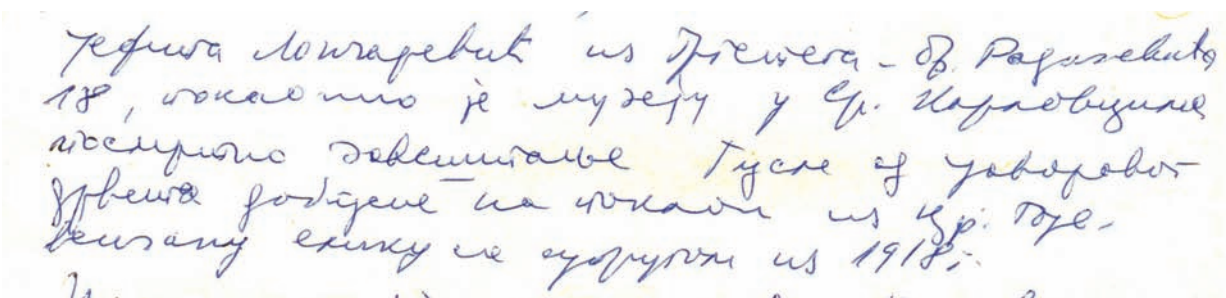 Јефита Лончаревић из Трстега - бр. Радичевића
18, поклонио је музеју у Ср. Карловцима
посмртно завештање Гусле од јаворовог
дрвета добијене на поклон из Цр. Горе.
венчану слику са супругом из 1918.